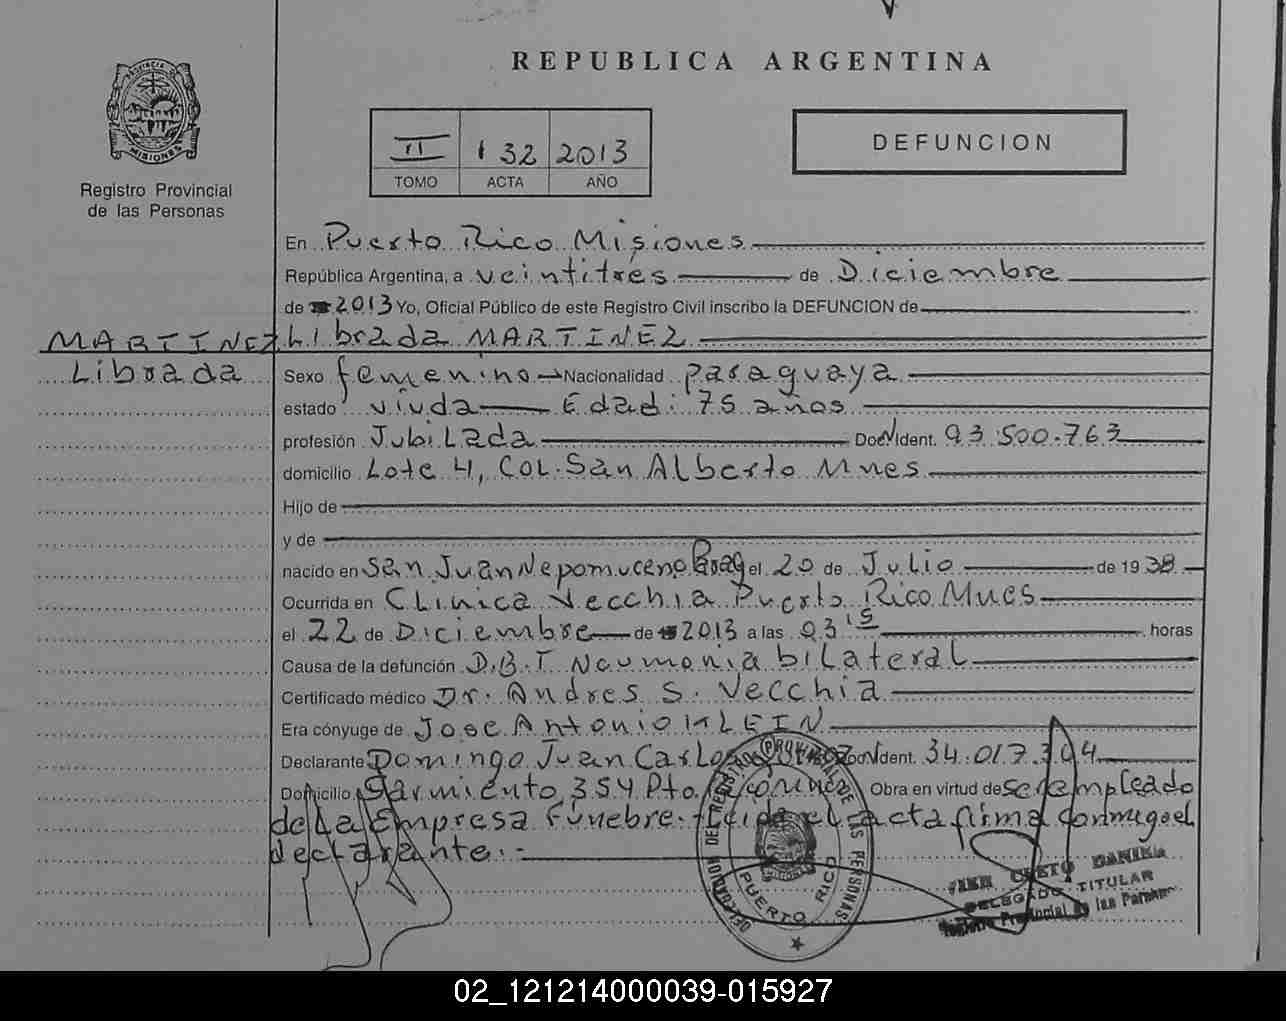 REPUBLICA ARGENTINA
PROVINCIA DE
MISIONES
Registro Provincial
de las Personas
II 132 2013
TOMO ACTA AÑO
DEFUNCION
En Puerto Rico Misiones
República Argentina, a veintitres de Diciembre
de 2013 Yo, Oficial Público de este Registro Civil inscribo la DEFUNCION de
MARTINEZ Librada MARTINEZ
Librada Sexo femenino Nacionalidad paraguaya
estado viuda Edad: 75 años
profesión Jubilada Doc. Ident. 93.500.763
domicilio Lote 4, Col. San Alberto Mnes
Hijo de
y de
nacido en San Juan Nepomuceno Parag el 20 de Julio de 1938
Ocurrida en Clinica Vecchia Puerto Rico Mnes
el 22 de Diciembre de 2013 a las 03 15 horas
Causa de la defunción D.B.T Neumonia bilateral
Certificado médico Dr. Andres S. Vecchia
Era cónyuge de Jose Antonio KLEIN
Declarante Domingo Juan Carlos Doc. Ident. 34.017.304
Domicilio Sarmiento 354 Pto. Rico Mnes Obra en virtud de ser empleado
de la Empresa Funebre. Leida el acta firma conmigo el
declarante.-
DELEGACION DEL REGISTRO PROVINCIAL DE LAS PERSONAS
PUERTO RICO
DELEGADO TITULAR
Registro Provincial de las Personas
02_121214000039-015927